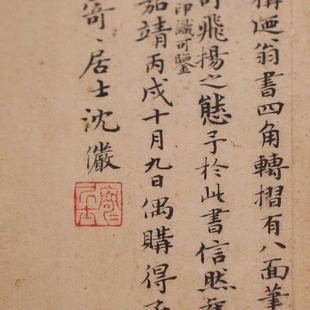 迺翁書四角轉摺有八面筆
飛揚之態予於此書信然
印識可鑒
嘉靖丙戌十月九日偶購得
寄〻居士沈